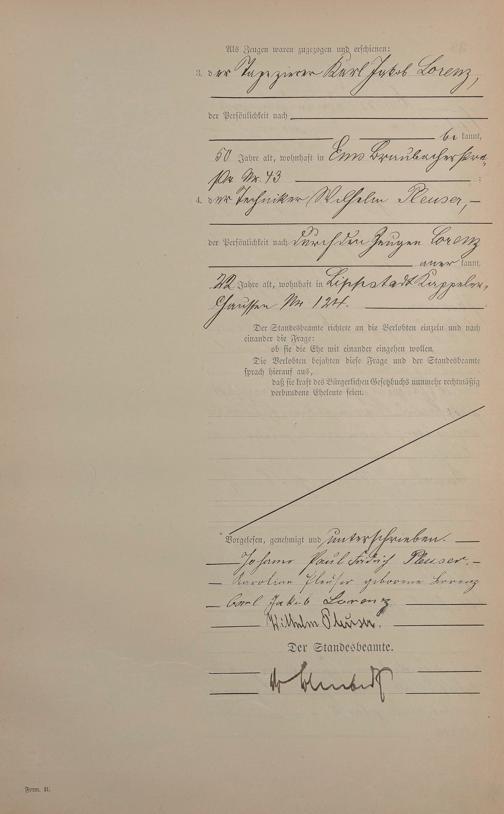 Als Zeugen waren zugezogen und erschienen:
3. der Tapezierer Karl Jakob Lorenz,
der Persönlichkeit nach
be kannt,
50 Jahre alt, wohnhaft in Ems Braubacherstra-
ße Nr. 43 ;
4. der Techniker Wilhelm Pleuser, –
der Persönlichkeit nach durch den Zeugen Lorenz
aner kannt,
22 Jahre alt, wohnhaft in Lippstadt Cappeler-
Chaussee Nr. 124.
Der Standesbeamte richtete an die Verlobten einzeln und nach
einander die Frage:
ob sie die Ehe mit einander eingehen wollen.
Die Verlobten bejahten diese Frage und der Standesbeamte
sprach hierauf aus,
daß sie kraft des Bürgerlichen Gesetzbuchs nunmehr rechtmäßig
verbundene Eheleute seien.
Vorgelesen, genehmigt und unterschrieben. –
Johann Paul Pleuser. –
Karoline Pleuser geborene Lorenz
Carl Jakob Lorenz
Wilhelm Pleuser.
Der Standesbeamte.
Form. B.